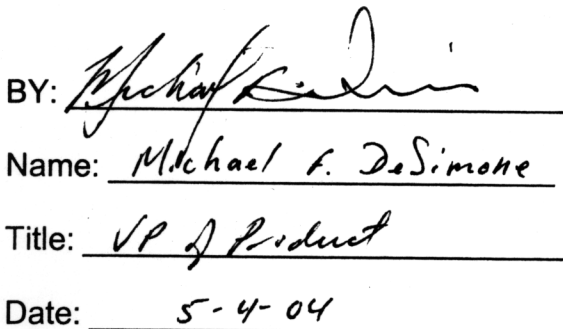 BY: Michael
Name: Michael F. DeSimone
Title: VP of Product
Date: 5-4-04